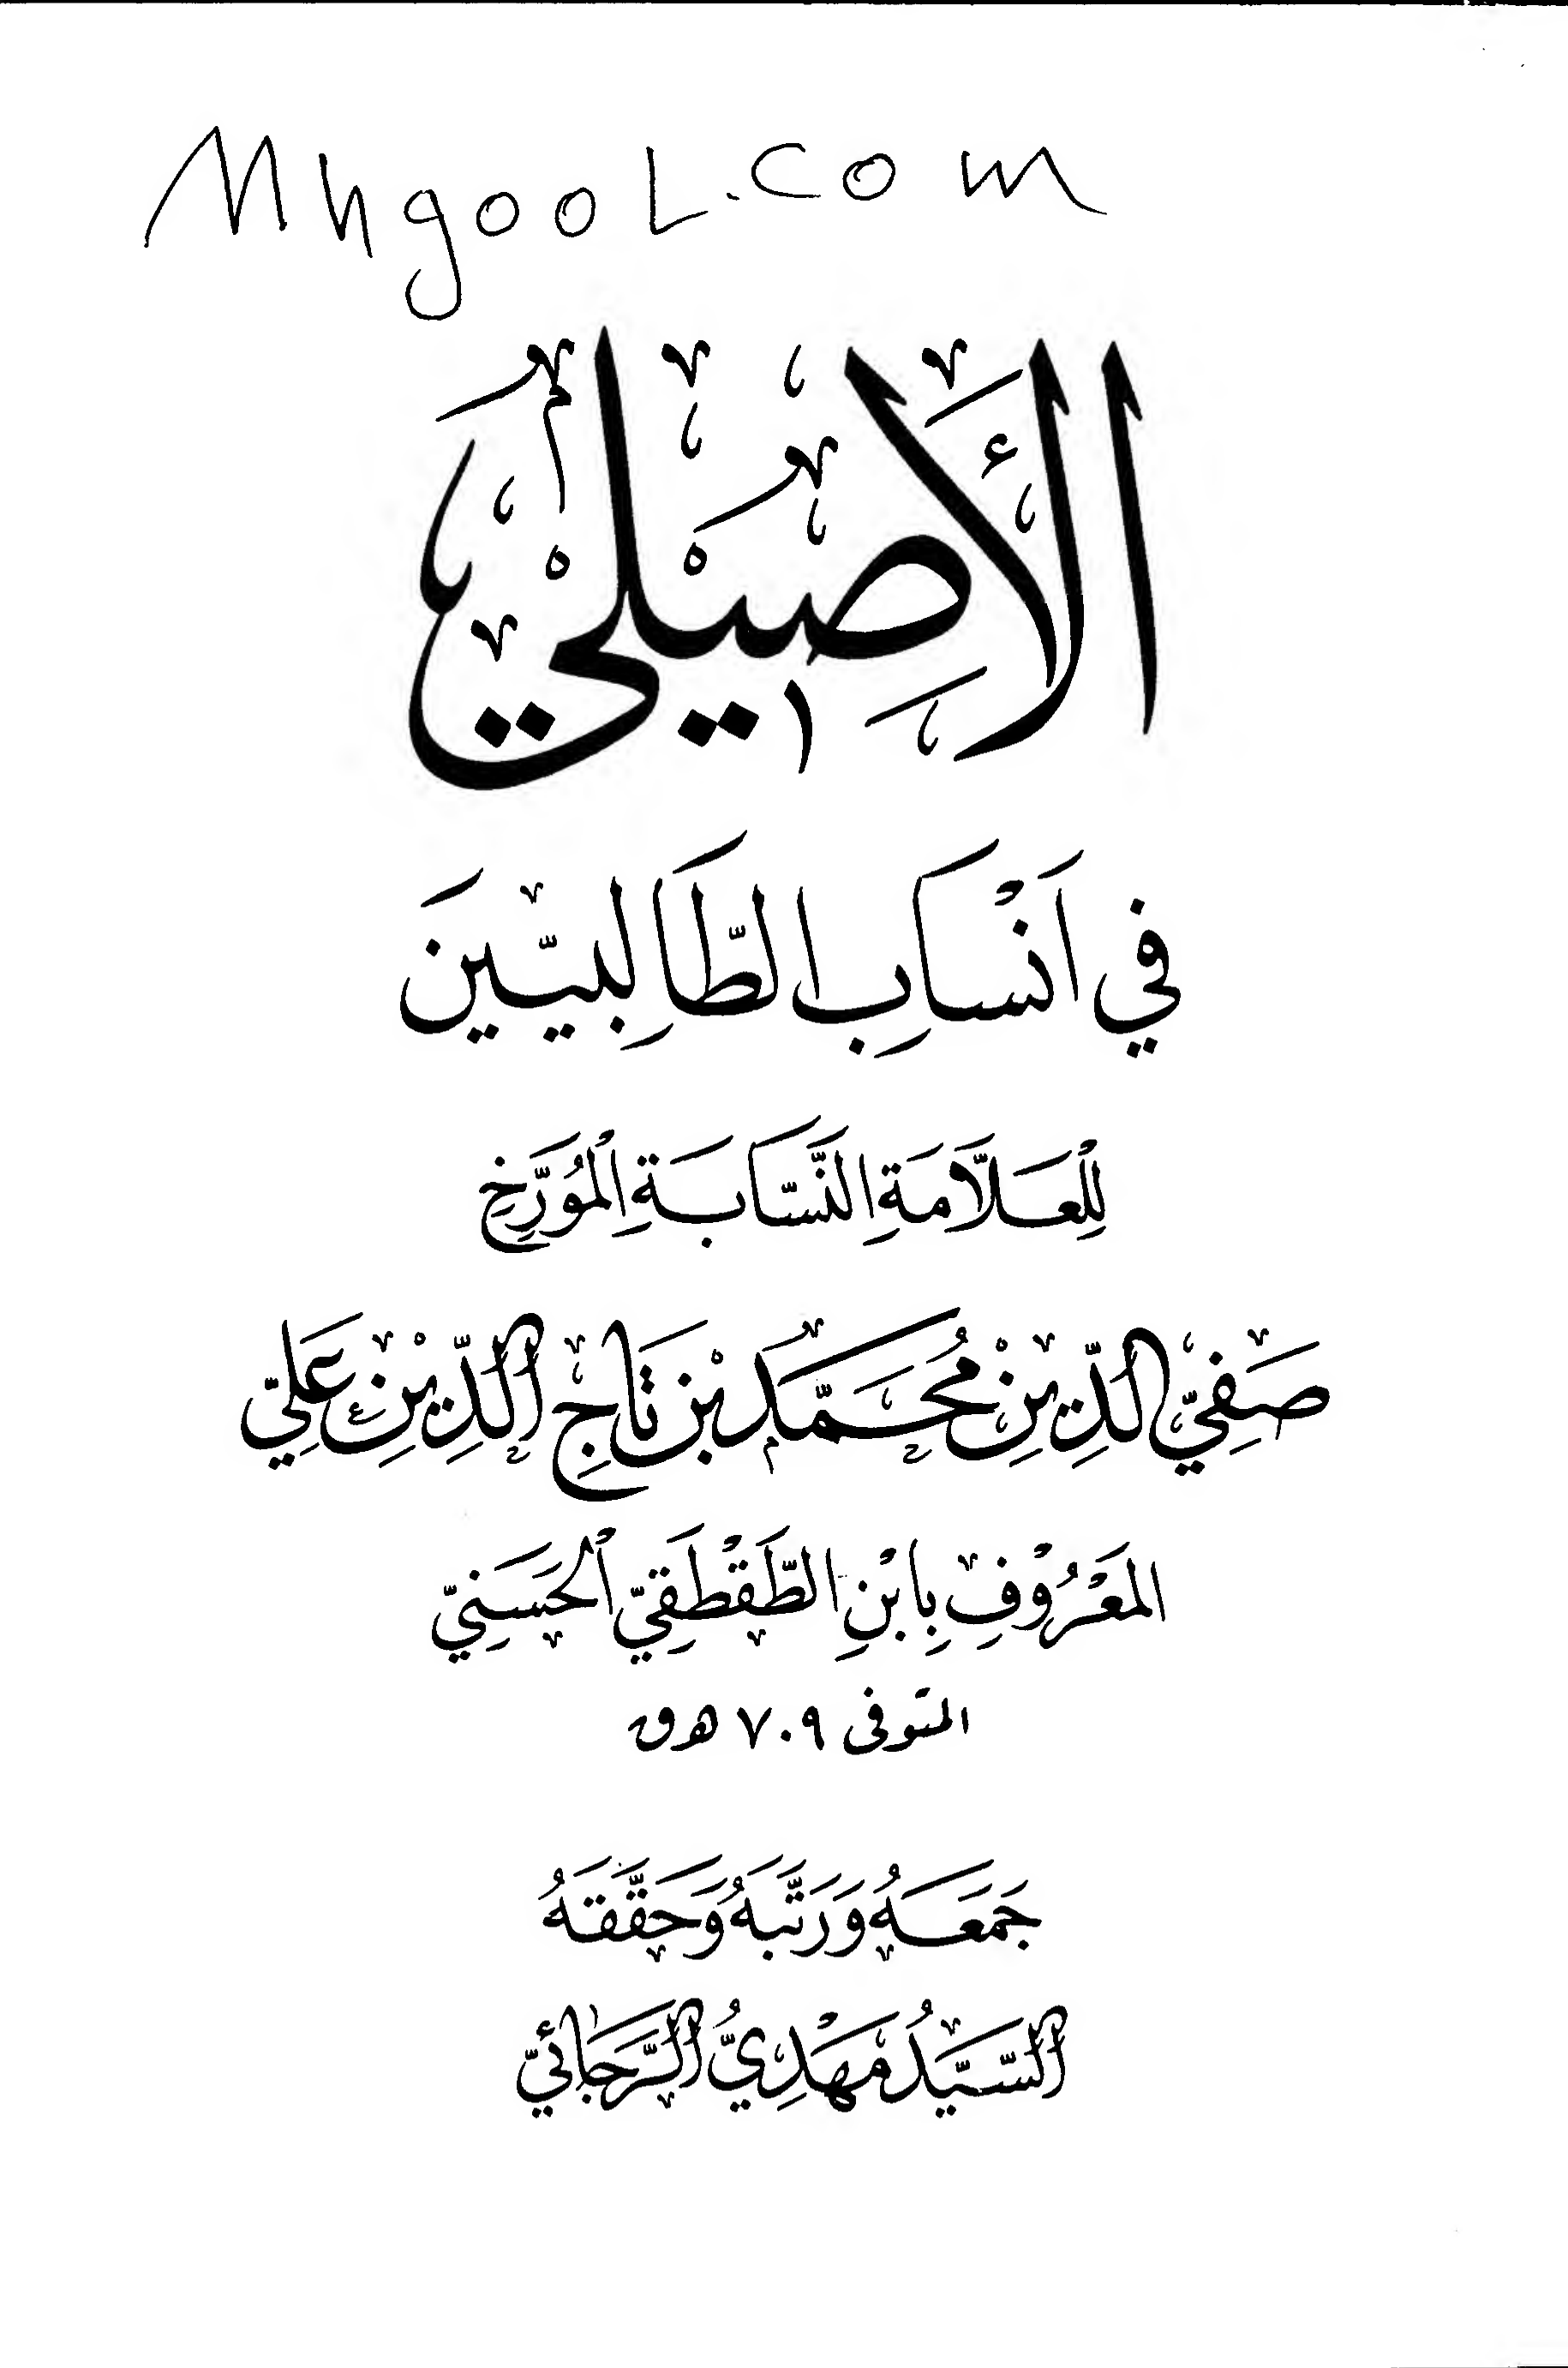 Mhgool.com
الأَصِيْلِيْ
في اَنْسَابِ الطَّالِبيّينَ
لِلْعَلَّامَةِ النَّسَّابَةِ الْمُوَرَّخِ
صَفِيّ الدِّيْنِ مُحَمَّد بْن تَاجِ الدِّيْنِ عَلِيّ
المَعْرُوْفِ بِابْنِ الطَّقْطَقِيّ الْحَسَنِيّ
المتوفى ٧٠٩ هـ ق
جَمَعَهُ وَرَتَّبَهُ وَحَقَّقَهُ
السَّيِّدُ مَهْدِيُّ الرَّجَائِيّ